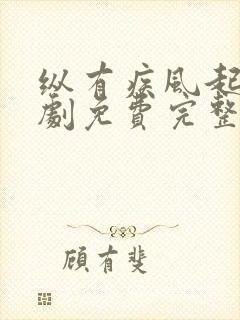 纵有疾风起
劇免費完整
顾有斐